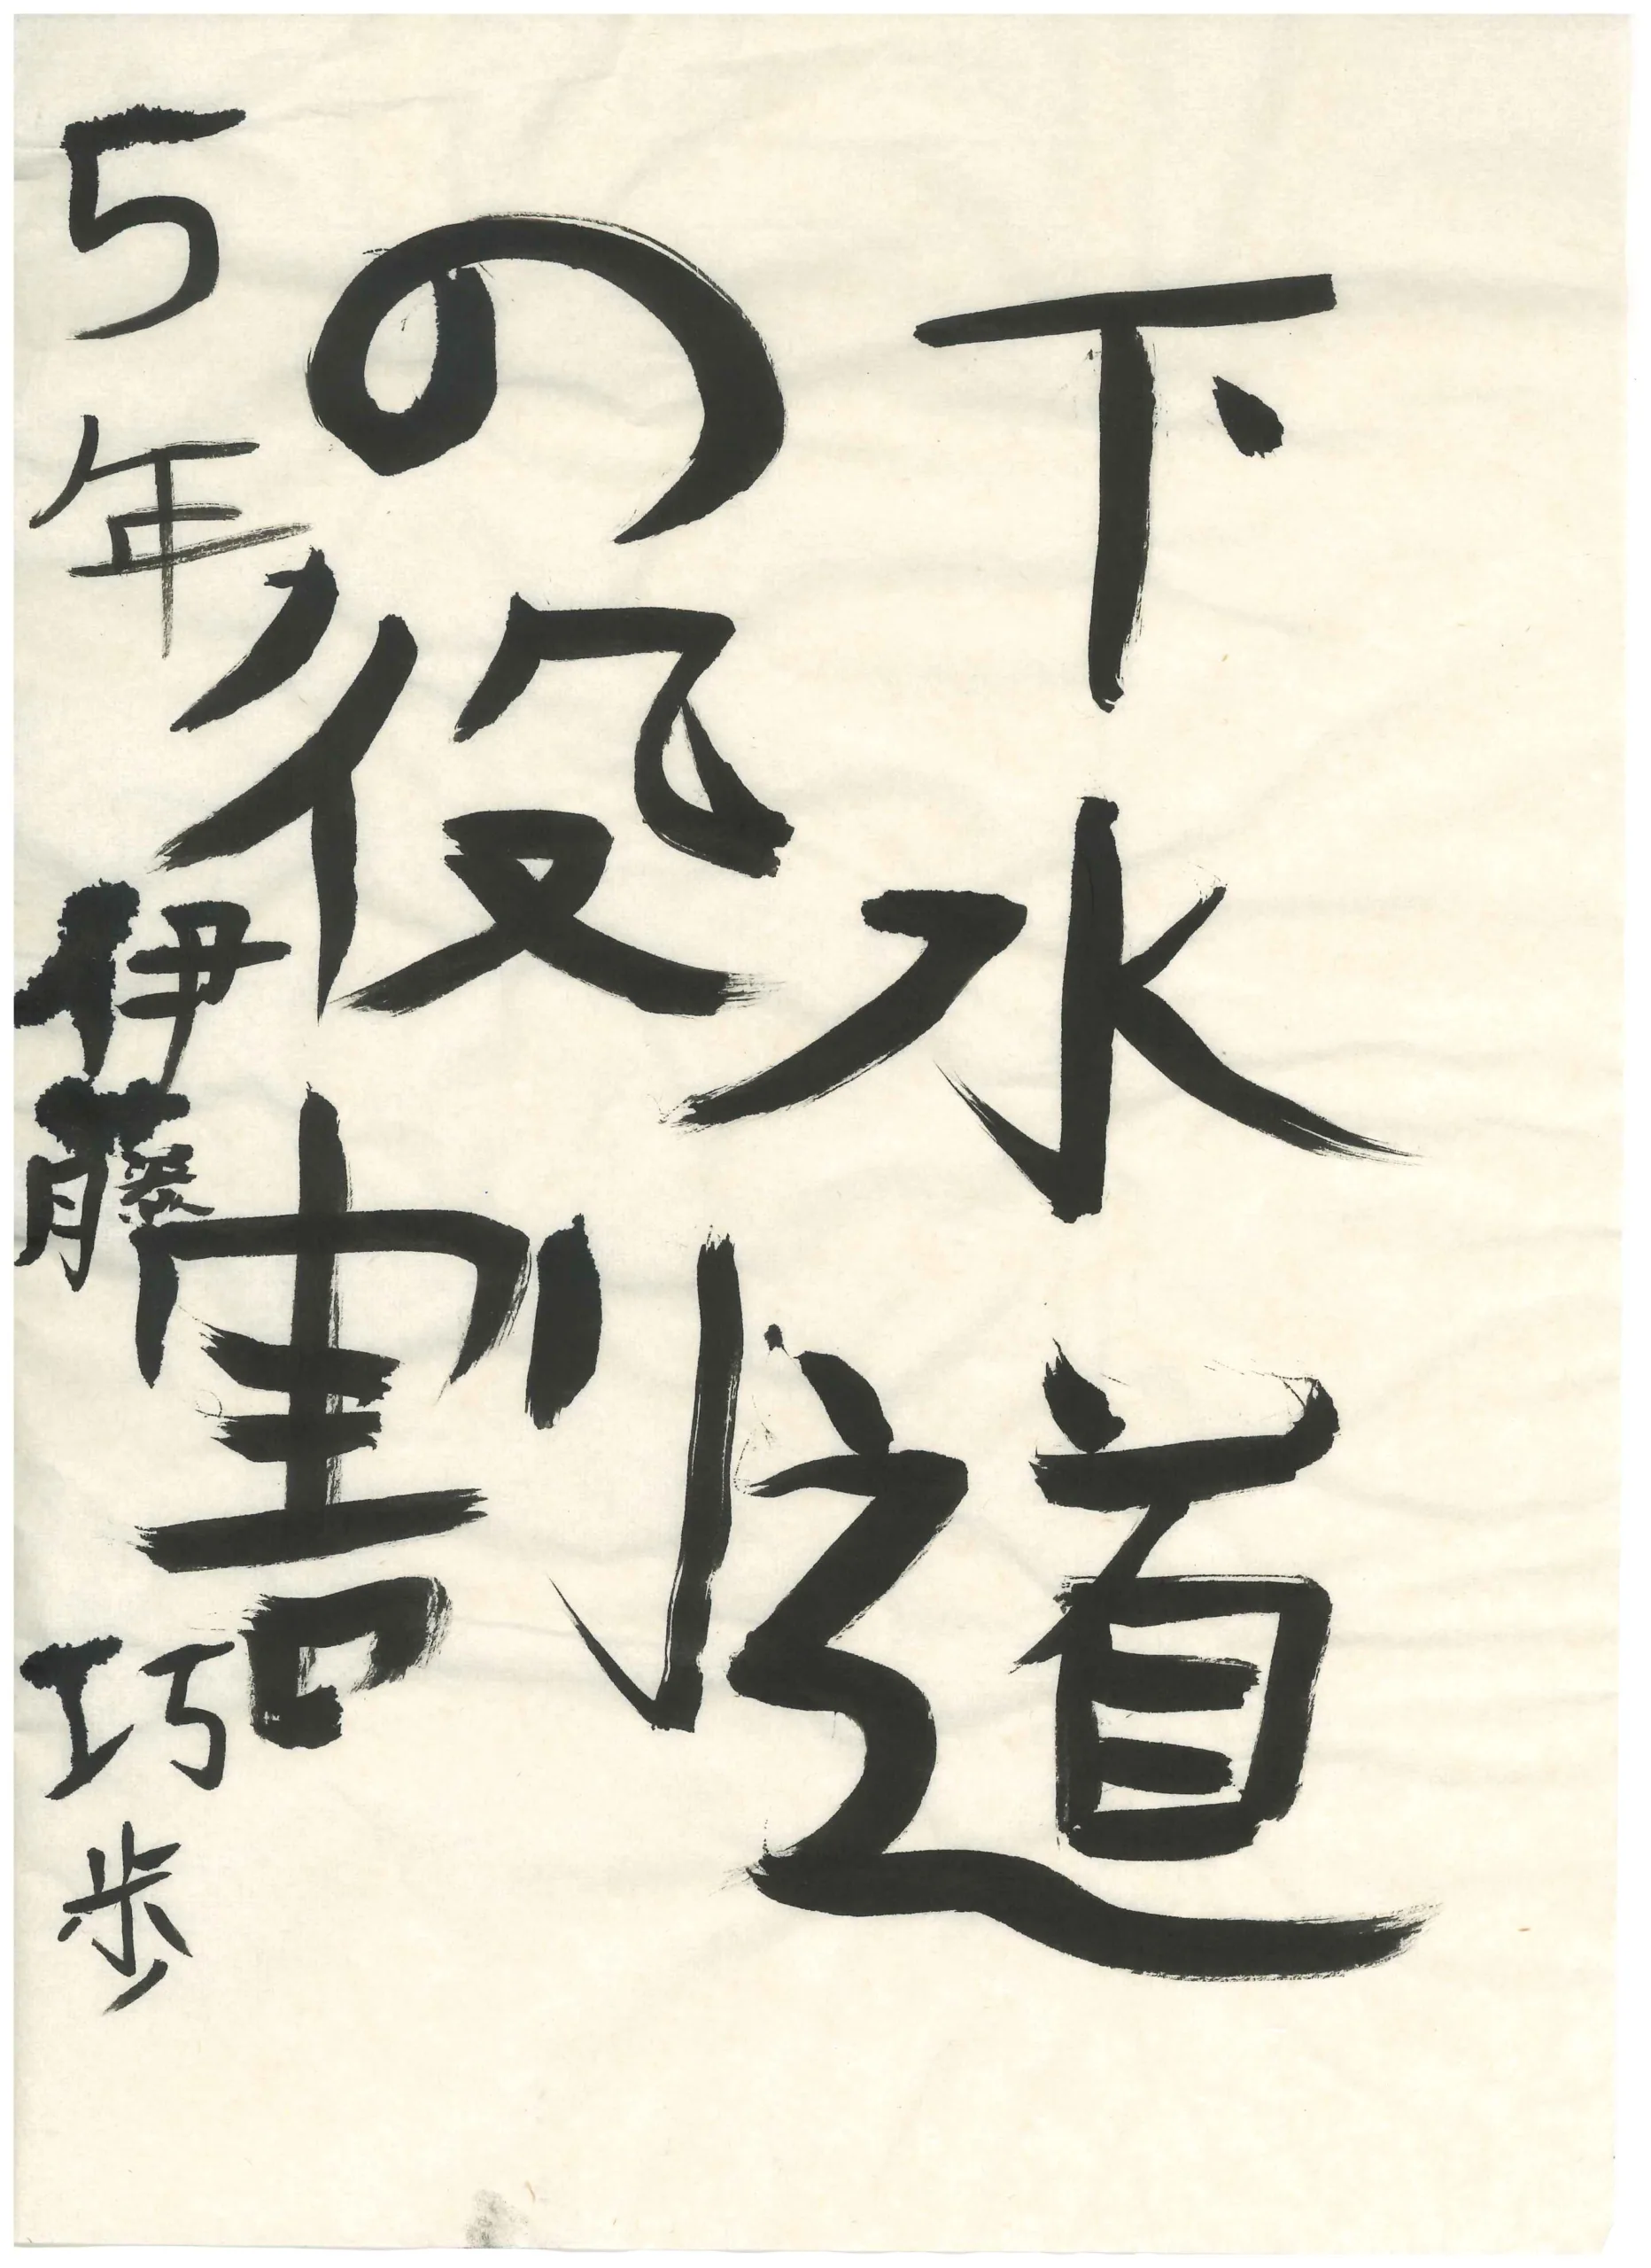 下水道
の役割
5年 伊藤 巧歩